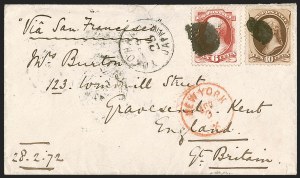 "Via San Francisco"
Mrs Burton
123. Windmill Street
Gravesend. Kent
England
Gt. Britain
28.2.72
YOKOHAMA
JAPAN
NEW YORK